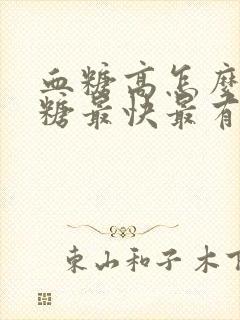 血糖高怎麼
糖最快最有
東山和子木下